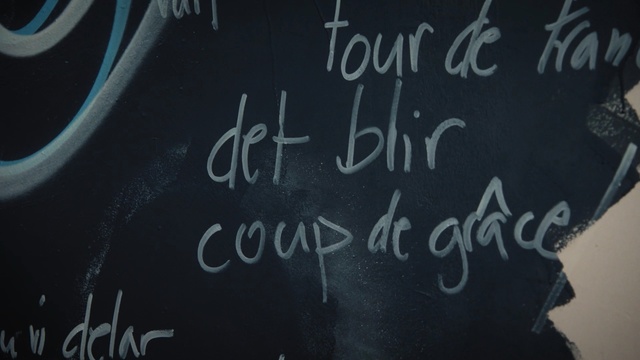 tour de
det blir
coup de grâce
vi delar